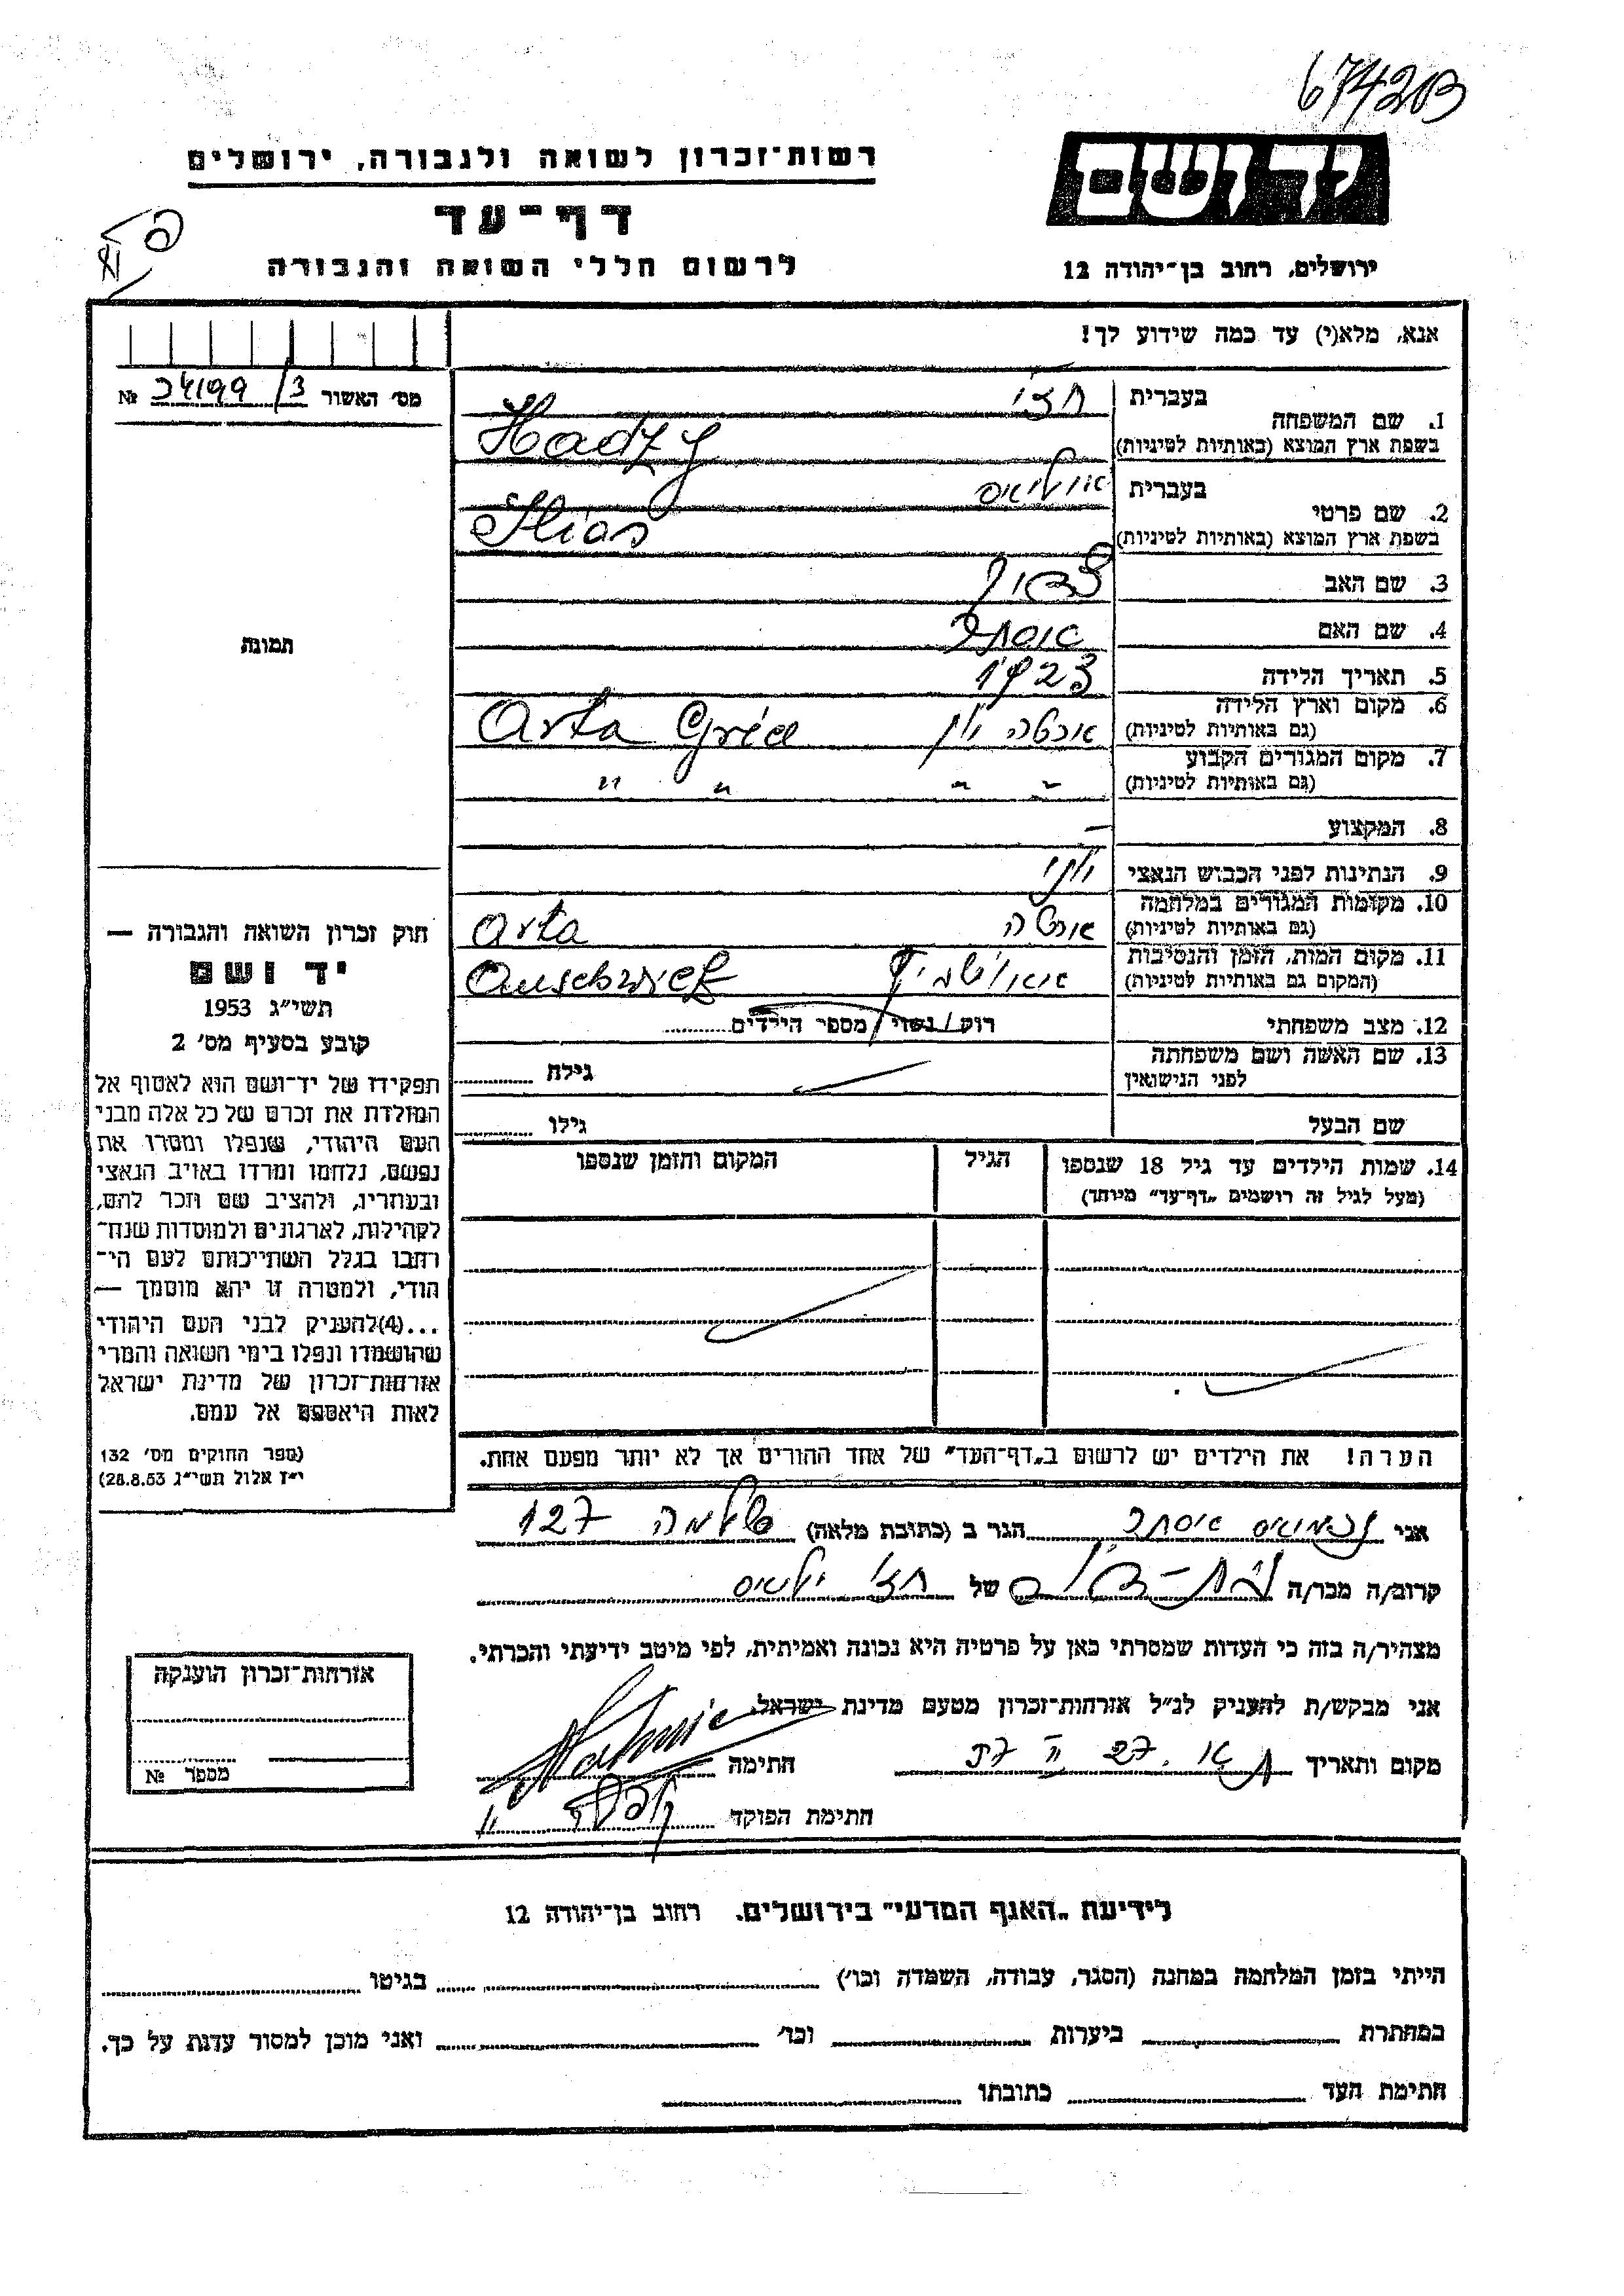 67420B
יד ושם
רשות־זכרון לשואה ולגבורה, ירושלים
דף־עד
לרשום חללי השואה והגבורה
ירושלים, רחוב בן־יהודה 12
אנא, מלא(י) עד כמה שידוע לך!
מס׳ האשור 34199/3 №
1. שם המשפחה בעברית חצי
בשפת ארץ המוצא (באותיות לטיניות) Hadzy
2. שם פרטי בעברית
בשפת ארץ המוצא (באותיות לטיניות) Ilias
3. שם האב
4. שם האם אסתר
5. תאריך הלידה 1923
6. מקום וארץ הלידה ארטה יון Arta
(גם באותיות לטיניות)
7. מקום המגורים הקבוע
(גם באותיות לטיניות) " " " "
8. המקצוע –
9. הנתינות לפני הכבוש הנאצי יוני
10. מקומות המגורים במלחמה ארטה Arta
(גם באותיות לטיניות)
11. מקום המות, הזמן והנסיבות
(המקום גם באותיות לטיניות)
12. מצב משפחתי רווק/נשוי/מספר הילדים
13. שם האשה ושם משפחתה
לפני הנישואין גילה
שם הבעל גילו
14. שמות הילדים עד גיל 18 שנספו הגיל המקום והזמן שנספו
(מעל לגיל זה רושמים „דף־עד” מיוחד)
הערה! את הילדים יש לרשום ב„דף־העד” של אחד ההורים אך לא יותר מפעם אחת.
תמונה
חוק זכרון השואה והגבורה —
יד ושם
תשי״ג 1953
קובע בסעיף מס׳ 2
תפקידו של יד־ושם הוא לאסוף אל
המולדת את זכרם של כל אלה מבני
העם היהודי, שנפלו ומסרו את
נפשם, נלחמו ומרדו באויב הנאצי
ובעוזריו, ולהציב שם וזכר להם,
לקהילות, לארגונים ולמוסדות שנח־
רבו בגלל השתייכותם לעם הי־
הודי, ולמטרה זו יהא מוסמך —
...(4) להעניק לבני העם היהודי
שהושמדו ונפלו בימי השואה והמרי
אזרחות־זכרון של מדינת ישראל
לאות היאספם אל עמם.
(ספר החוקים מס׳ 132
י״ז אלול תשי״ג 28.8.53)
אני נחמיאס אסתר הגר ב (כתובת מלאה) שלמה 127
קרוב/ה מכר/ה של חצי
מצהיר/ה בזה כי העדות שמסרתי כאן על פרטיה היא נכונה ואמיתית, לפי מיטב ידיעתי והכרתי.
אני מבקש/ת להעניק לנ״ל אזרחות־זכרון מטעם מדינת ישראל.
מקום ותאריך חתימה
חתימת הפוקד
אזרחות־זכרון הוענקה
מספר №
לידיעת „האגף המדעי” בירושלים, רחוב בן־יהודה 12
הייתי בזמן המלחמה במחנה (הסגר, עבודה, השמדה וכו׳) בגיטו
במחתרת ביערות וכו׳ ואני מוכן למסור עדות על כך.
חתימת העד כתובתו